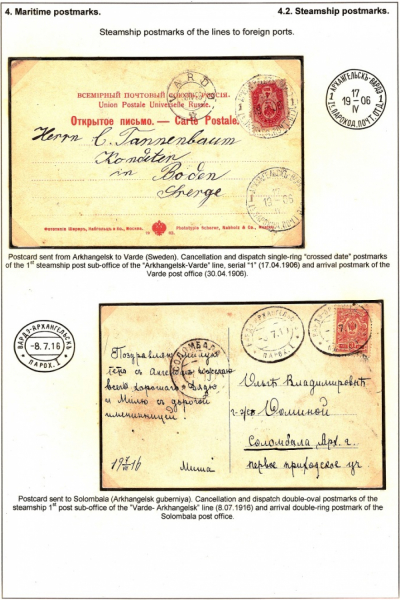 4. Maritime postmarks.
4.2. Steamship postmarks.
Steamship postmarks of the lines to foreign ports.
ВСЕМІРНЫЙ ПОЧТОВЫЙ СОЮЗЪ. РОССІЯ.
Union Postale Universelle Russie.
Открытое письмо. — Carte Postale.
Herrn C. Tannenbaum
Konditor
in Boden
Sverge
VARDØ
АРХАНГЕЛЬСКЪ-ВАРДЭ
17
19-06
IV
Postcard sent from Arkhangelsk to Varde (Sweden). Cancellation and dispatch single-ring "crossed date" postmarks
of the 1st steamship post sub-office of the "Arkhangelsk-Varde" line, serial "1" (17.04.1906) and arrival postmark of the
Varde post office (30.04.1906).
ВАРДЭ-АРХАНГЕЛЬСКЪ
-8.7.16
ПАРОХ. 1
СОЛОМБАЛА
Поздравляю милую
тетю с Ангелом
всего хорошаго Дядю
и Милю с дорогой
именинницей.
Миша
Ольге Владимировне
Фоминой
Соломбала Арх. г.
первое приходское уч.
Postcard sent to Solombala (Arkhangelsk guberniya). Cancellation and dispatch double-oval postmarks of the
steamship 1st post sub-office of the "Varde- Arkhangelsk" line (8.07.1916) and arrival double-ring postmark of the
Solombala post office.